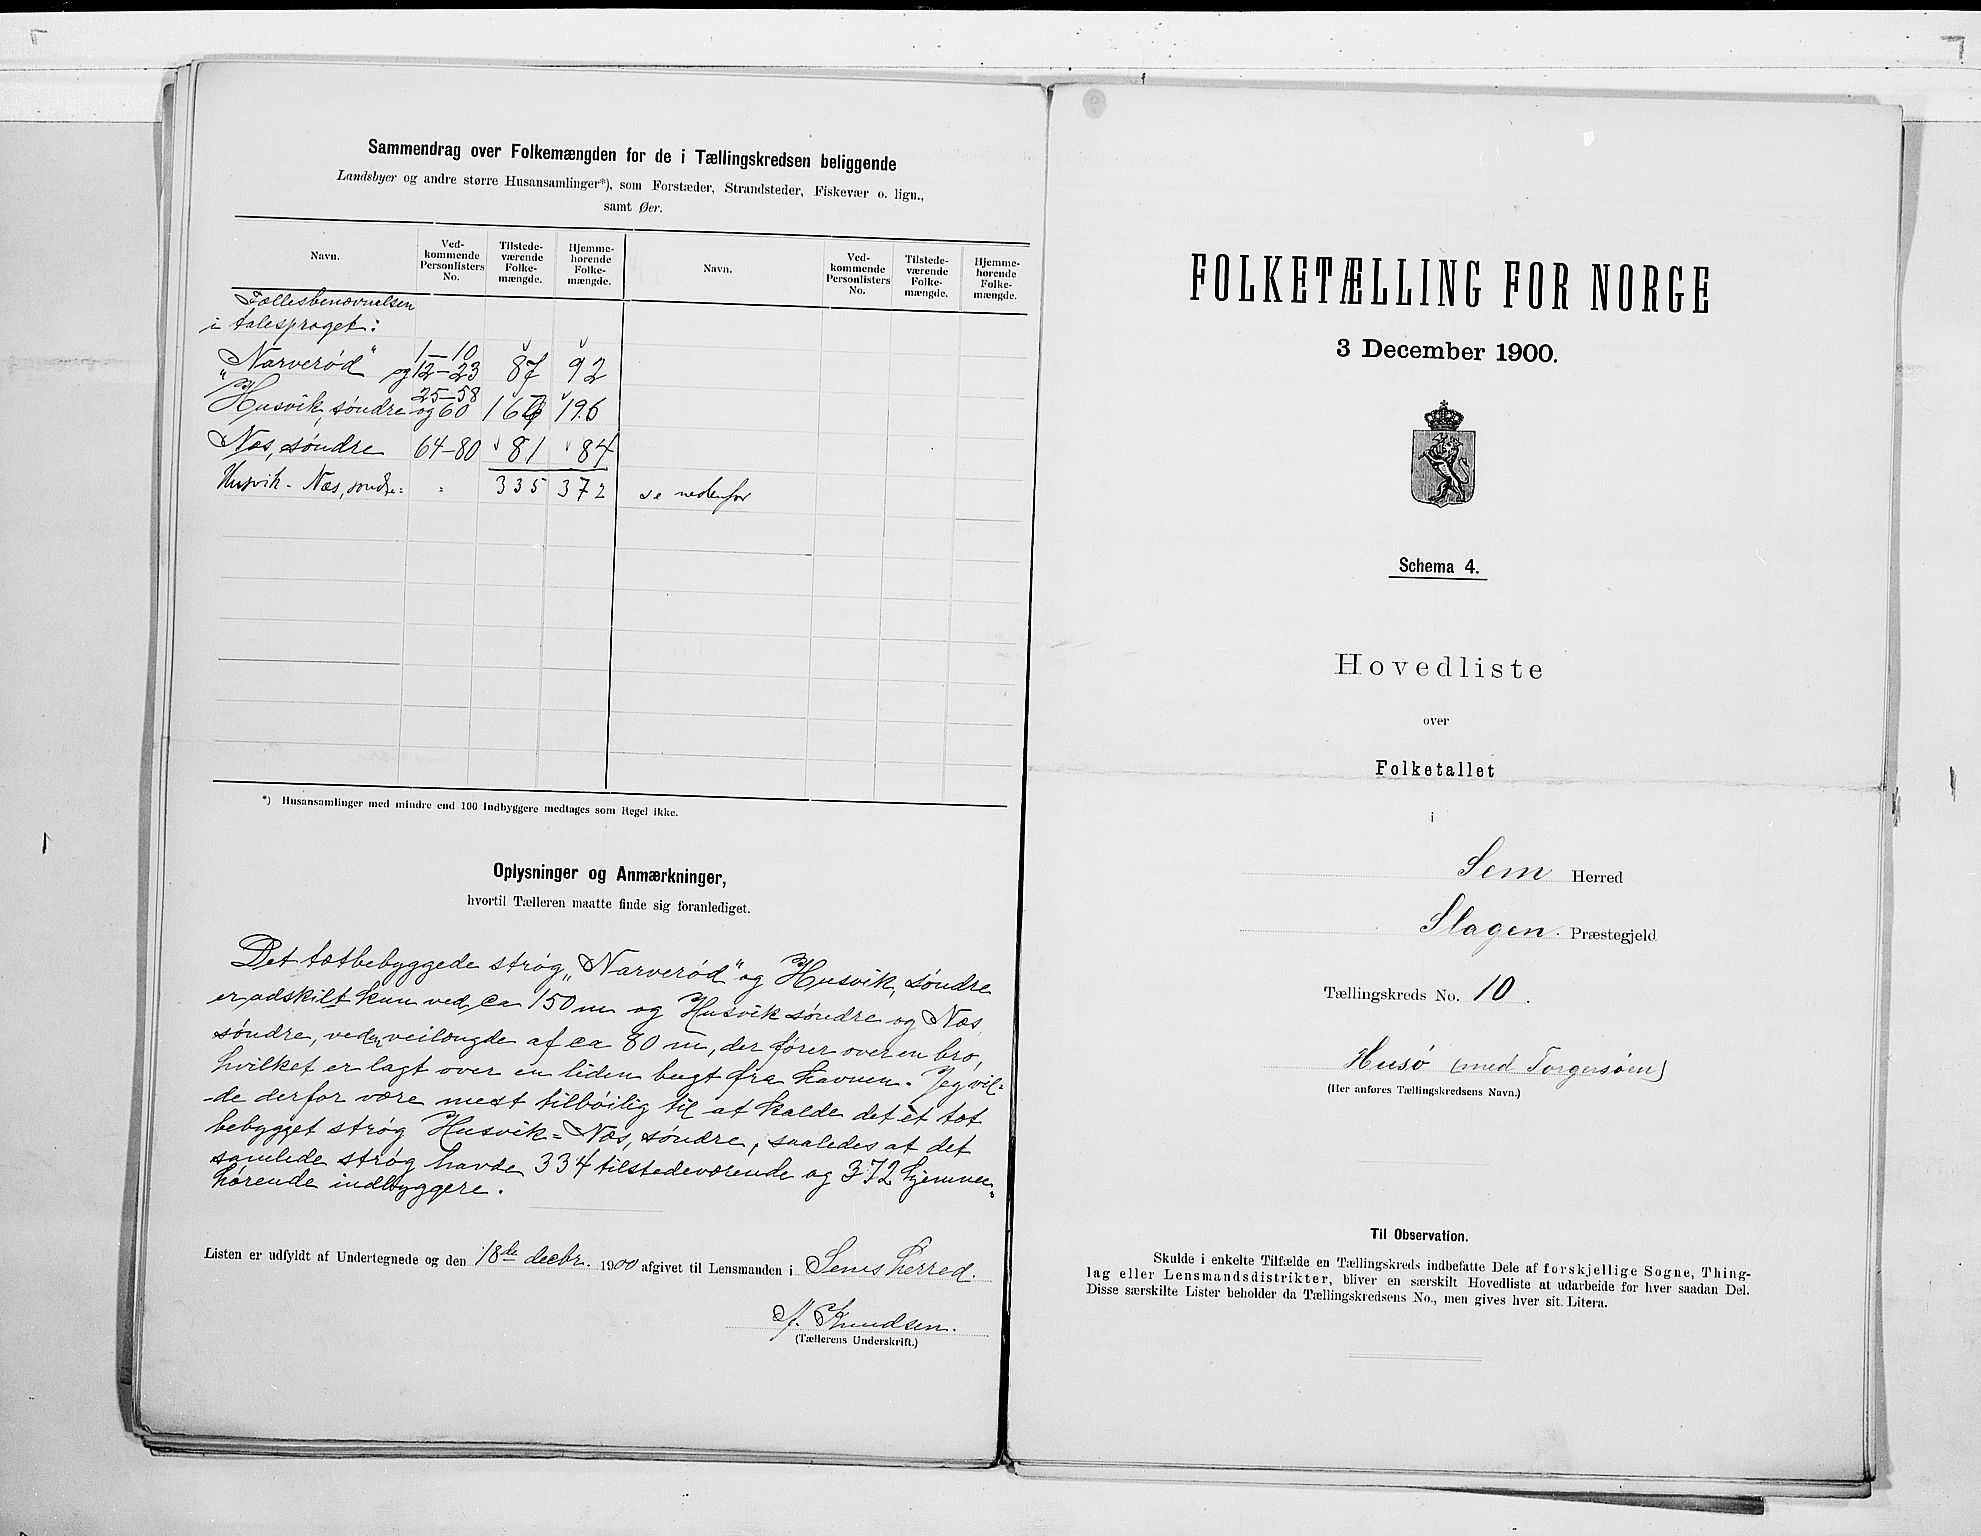 Sammendrag over Folkemængden for de i Tællingskredsen beliggende
Landsbyer og andre større Husansamlinger*), som Forstæder, Strandsteder, Fiskevær o. lign.,
samt Øer.
Navn. Ved-kommende Personlisters No. Tilstede-værende Folke-mængde. Hjemme-hørende Folke-mængde. Navn. Ved-kommende Personlisters No. Tilstede-værende Folke-mængde. Hjemme-hørende Folke-mængde.
Fællesbenævnelsen
i talesproget:
1–10
„Narverød“ og 12–23 87 92
25–58
Husvik, søndre og 60 167 196
Næs, søndre 64–80 81 84
Husvik - Næs, søndre = " 335 372 se nedenfor
*) Husansamlinger med mindre end 100 Indbyggere medtages som Regel ikke.
Oplysninger og Anmærkninger,
hvortil Tælleren maatte finde sig foranlediget.
Det tætbebyggede strøg „Narverød“ og Husvik, søndre
er adskilt kun ved ca 150 m og Husvik søndre og Næs
søndre, ved en veilængde af ca 80 m, der fører over en bro,
hvilket er lagt over en liden bugt fra havnen. Jeg vil-
de derfor være mest tilbøilig til at kalde det èt tæt
bebygget strøg Husvik=Næs, søndre, saaledes at det
samlede strøg havde 334 tilstedeværende og 372 hjemme=
hørende indbyggere.
Listen er udfyldt af Undertegnede og den 18de decbr. 1900 afgivet til Lensmanden i Sems herred.
A. Knudsen.
(Tællerens Underskrift.)
FOLKETÆLLING FOR NORGE
3 December 1900.
Schema 4.
Hovedliste
over
Folketallet
i
Sem Herred
Slagen. Præstegjeld
Tællingskreds No. 10.
Husø (med Torgersøen)
(Her anføres Tællingskredsens Navn.)
Til Observation.
Skulde i enkelte Tilfælde en Tællingskreds indbefatte Dele af forskjellige Sogne, Thing-
lag eller Lensmandsdistrikter, bliver en særskilt Hovedliste at udarbeide for hver saadan Del.
Disse særskilte Lister beholder da Tællingskredsens No., men gives hver sit Litera.